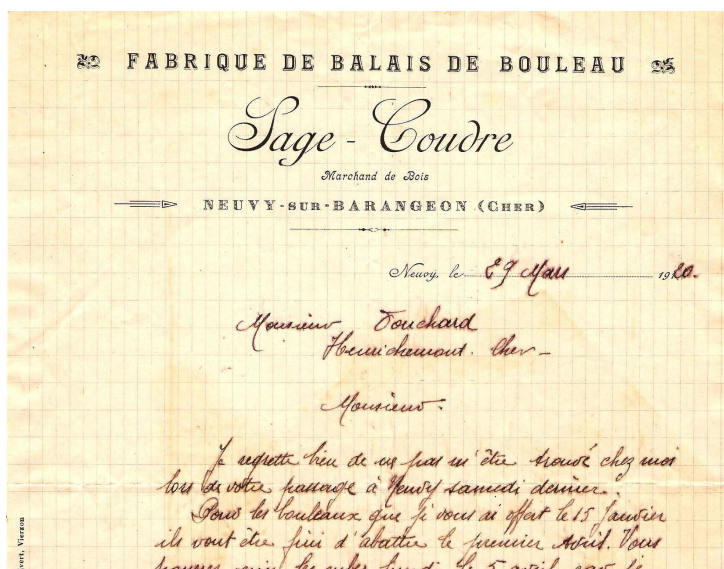 FABRIQUE DE BALAIS DE BOULEAU
Sage - Coudre
Marchand de Bois
NEUVY-SUR-BARANGEON (CHER)
Neuvy, le 29 Mars 1920.
Monsieur Touchard
Henrichemont. Cher -
Monsieur.
Je regrette bien de ne pas m'être trouvé chez moi
lors de votre passage à Neuvy samedi dernier.
Pour les bouleaux que je vous ai offert le 15 Janvier
ils vont être fini d'abattre le premier Avril. Vous
pouvez venir les lundi le 5 avril
Vierzon